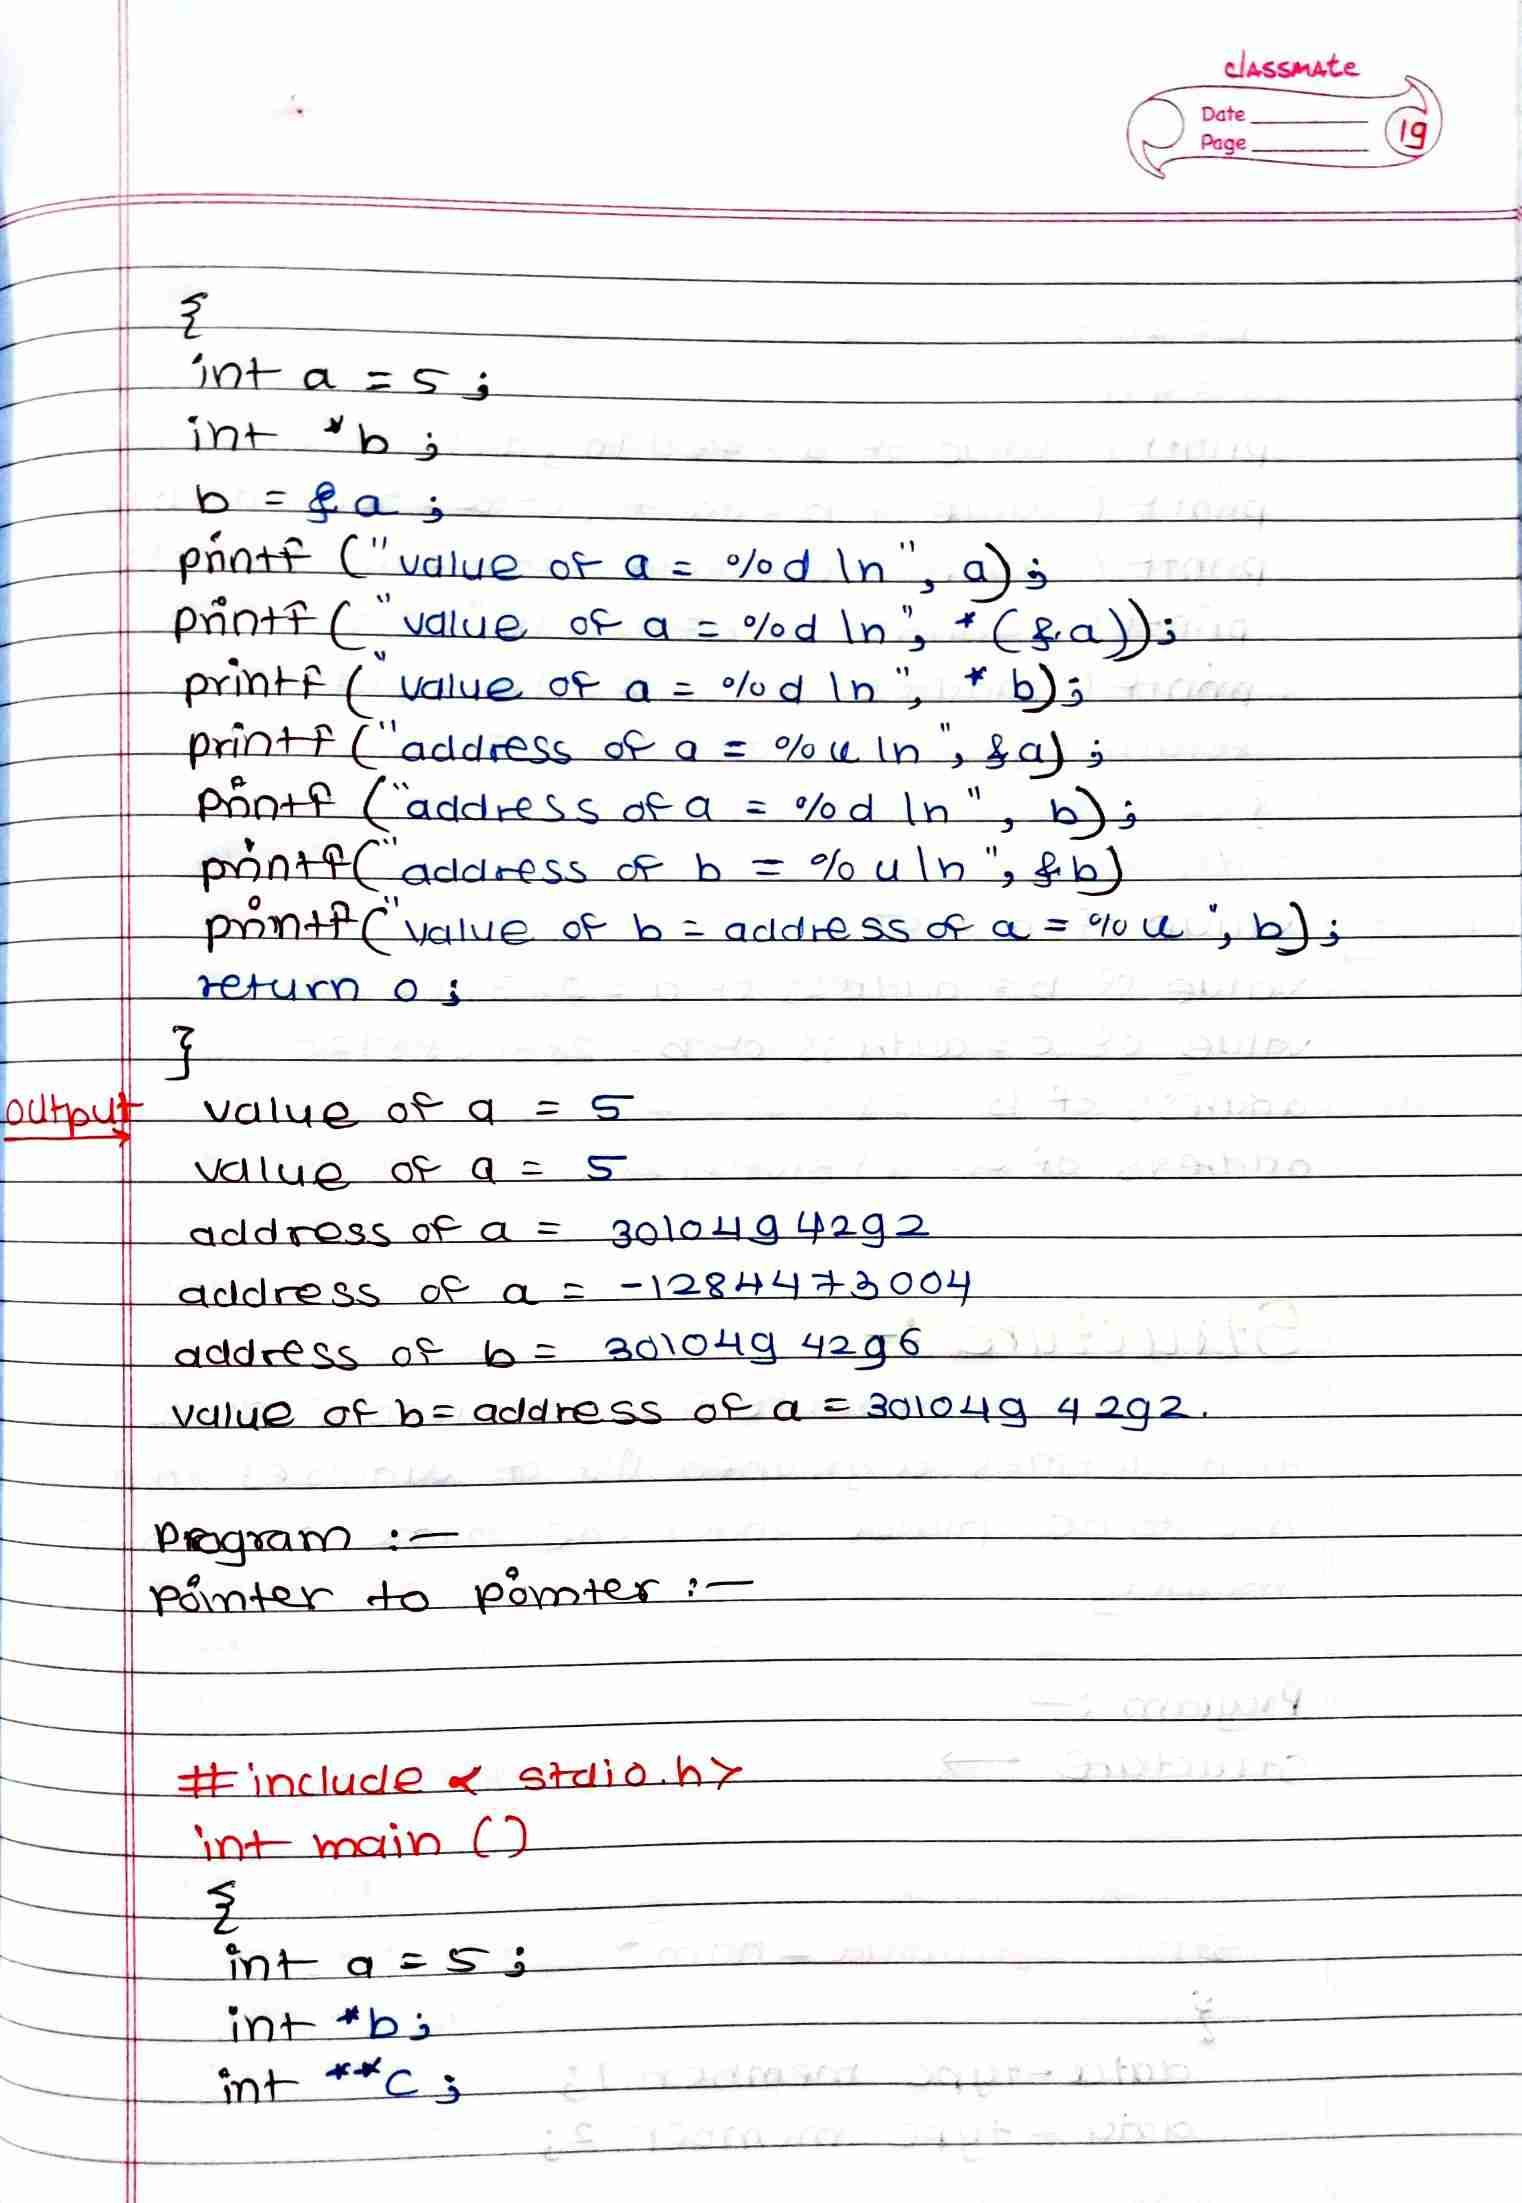 classmate
Date
Page
19
{
int a = 5 ;
int *b ;
b = &a ;
printf ("value of a = %d \n", a) ;
printf ("value of a = %d \n", *(&a)) ;
printf ("value of a = %d \n", *b) ;
printf ("address of a = %u \n", &a) ;
printf ("address of a = %d \n", b) ;
printf ("address of b = %u \n", &b)
printf ("value of b = address of a = %u ", b) ;
return 0 ;
}
output value of a = 5
value of a = 5
address of a = 3010494292
address of a = -1284473004
address of b = 3010494296
value of b = address of a = 3010494292.
Program :-
Pointer to pointer :-
#include < stdio.h>
int main ()
{
int a = 5 ;
int *b ;
int **c ;